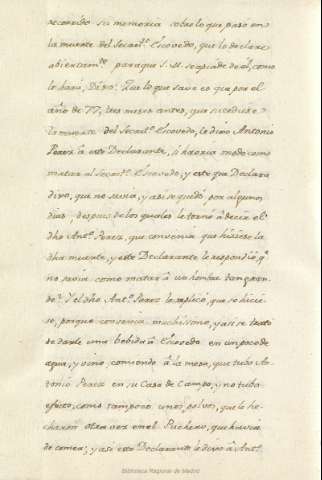 recorrido su memoria sobre lo que paso en
la muerte del Secret.º Escovedo, que lo declare
abiertam.te para que S. M. se apiade de él, como
lo hará, Dixo: Que lo que save es que por el
año de 77, tres meses antes, que sucediere
la muerte del Secret.º Escovedo, le dixo Antonio
Perez à este Declarante, si habria modo como
matar al Secret.º Escovedo, y este que Declara
dixo, que no savia, y asi se quedó por algunos
dias, despues de los quales le tornó à decir el
dho Ant.º Perez, que convenia que hiciese la
dha muerte, y este Declarante le respondio, q.e
no savia como matar à un hombre tan gran-
de. Y el dho Ant.º Perez replicó, que se hicie-
se, porque convenia muchisimo, y asi se trató
de darle una bebida à Escovedo en un poco de
agua, y vino, comiendo à la mesa, que tubo An-
tonio Perez en su Casa de Campo, y no tubo
efecto, como tampoco unos polvos, que le he-
charon otra vez en el Puchero, que havia
de comer; y asi este Declarante le dixo à Ant.º
Biblioteca Regional de Madrid